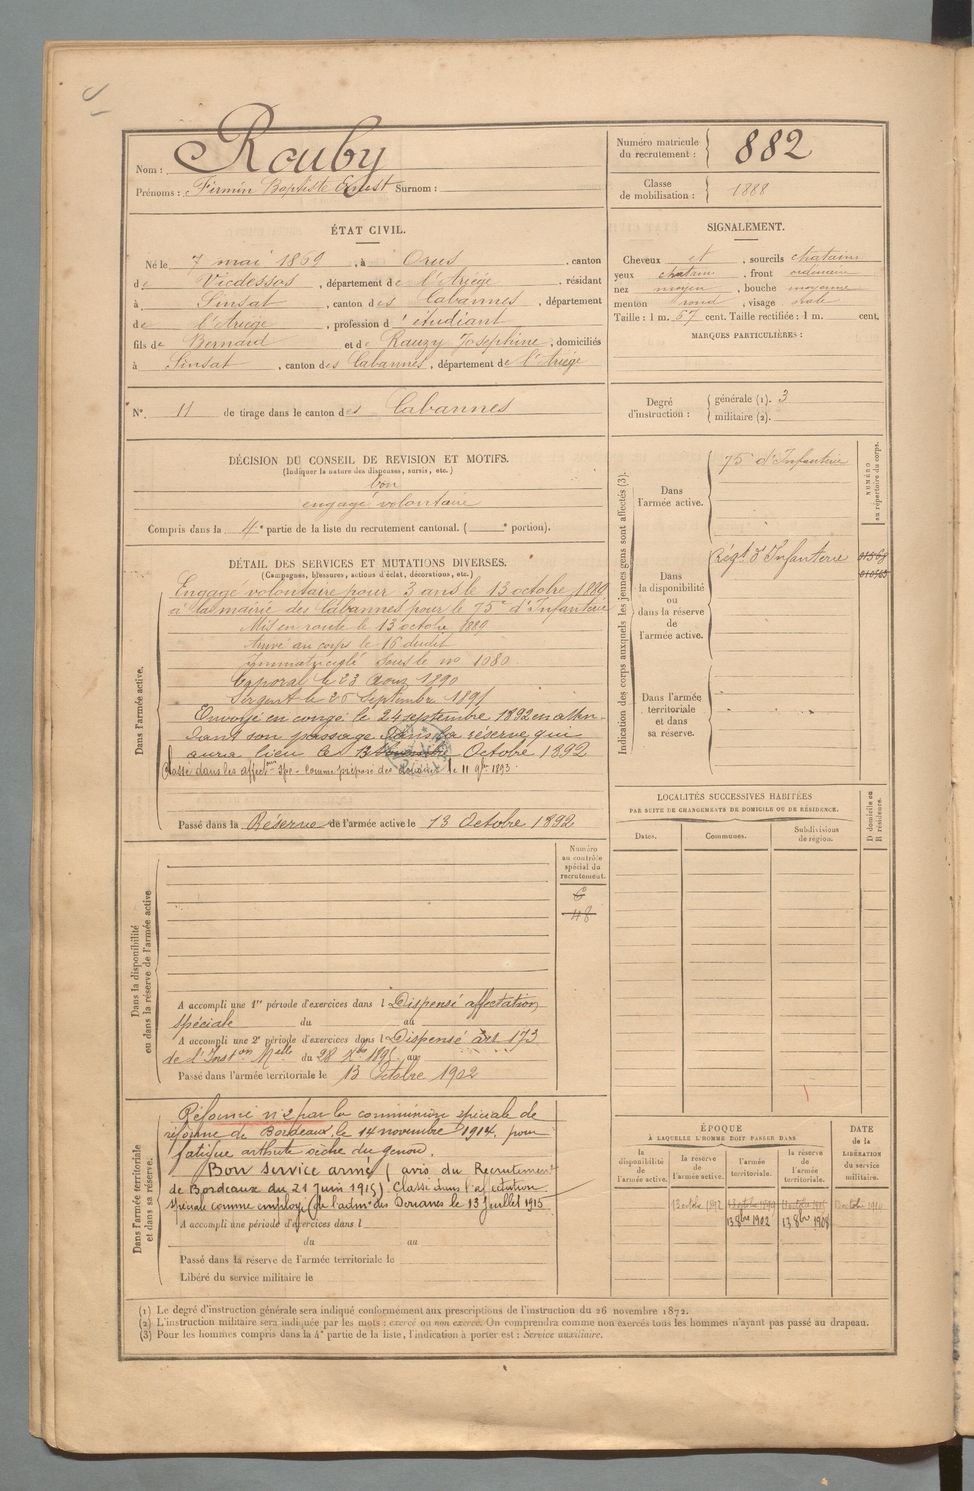 Nom : Rouby
Prénoms : Firmin Baptiste Ernest Surnom :
Numéro matricule du recrutement : 882
Classe de mobilisation : 1888
ÉTAT CIVIL.
Né le 7 mai 1869, à Orus, canton
de Vicdessos, département de l'Ariège, résidant
à Sinsat, canton des Cabannes, département
de l'Ariège, profession d'étudiant
fils de Bernard et de Rauzy Joséphine, domiciliés
à Sinsat, canton des Cabannes, département de l'Ariège
N°. 11 de tirage dans le canton des Cabannes
SIGNALEMENT.
Cheveux et, sourcils chatains
yeux chatains, front ordinaire
nez moyen, bouche moyenne
menton rond, visage ovale
Taille : 1 m. 67 cent. Taille rectifiée : 1 m. cent.
MARQUES PARTICULIÈRES :
Degré d'instruction : générale (1). 3
militaire (2).
DÉCISION DU CONSEIL DE REVISION ET MOTIFS.
(Indiquer la nature des dispenses, sursis, etc.)
bon
engagé volontaire
Compris dans la 4e partie de la liste du recrutement cantonal. ( e portion).
DÉTAIL DES SERVICES ET MUTATIONS DIVERSES.
(Campagnes, blessures, actions d'éclat, décorations, etc.)
Dans l'armée active.
Engagé volontaire pour 3 ans le 13 octobre 1889
à la mairie des Cabannes pour le 75e d'Infanterie
Mis en route le 13 octobre 1889
Arrivé au corps le 16 dudit
Immatriculé sous le no 1080
Caporal le 23 Aout 1890
Sergent le 26 Septembre 1891
Envoyé en congé le 24 septembre 1892 en atten-
dant son passage dans la réserve qui
aura lieu le 13 Octobre 1892
Classé dans les affectons spé. comme préposé des douanes le 11 9bre 1893.
Passé dans la Réserve de l'armée active le 13 Octobre 1892
Indication des corps auxquels les jeunes gens sont affectés (3).
Dans l'armée active.
75e d'Infanterie
NUMÉRO au répertoire du corps.
Dans la disponibilité ou dans la réserve de l'armée active.
Régt d'Infanterie
Dans l'armée territoriale et dans sa réserve.
LOCALITÉS SUCCESSIVES HABITÉES
PAR SUITE DE CHANGEMENTS DE DOMICILE OU DE RÉSIDENCE.
Dates.
Communes.
Subdivisions de région.
D domicile ou R résidence.
Dans la disponibilité ou dans la réserve de l'armée active
Numéro au contrôle spécial du recrutement.
6
48
A accompli une 1re période d'exercices dans l Dispensé affectation
spéciale du au
A accompli une 2e période d'exercices dans l Dispensé art 173
de l'Inston Melle du 28 Xbre 1895 au
Passé dans l'armée territoriale le 13 Octobre 1902
Dans l'armée territoriale et dans sa réserve.
Réformé n°2 par la commission spéciale de
réforme de Bordeaux, le 14 novembre 1914, pour
fatigue arthrite sèche du genou.
Bon service armé (avis du Recrutement
de Bordeaux du 21 Juin 1915) Classé dans l'affectation
spéciale comme employé de l'admon des Douanes le 13 Juillet 1915
A accompli une période d'exercices dans l
du au
Passé dans la réserve de l'armée territoriale le
Libéré du service militaire le
ÉPOQUE
À LAQUELLE L'HOMME DOIT PASSER DANS
la disponibilité de l'armée active.
la réserve de l'armée active.
l'armée territoriale.
la réserve de l'armée territoriale.
DATE de la LIBÉRATION du service militaire.
13 octobre 1892
13 8bre 1902
13 8bre 1908
(1) Le degré d'instruction générale sera indiqué conformément aux prescriptions de l'instruction du 26 novembre 1872.
(2) L'instruction militaire sera indiquée par les mots : exercé ou non exercé. On comprendra comme non exercés tous les hommes n'ayant pas passé au drapeau.
(3) Pour les hommes compris dans la 4e partie de la liste, l'indication à porter est : Service auxiliaire.